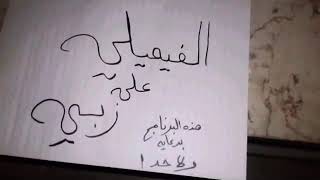 الفيميلي
علي
زبي
هذه البرنامج
برعاية
واحد 1